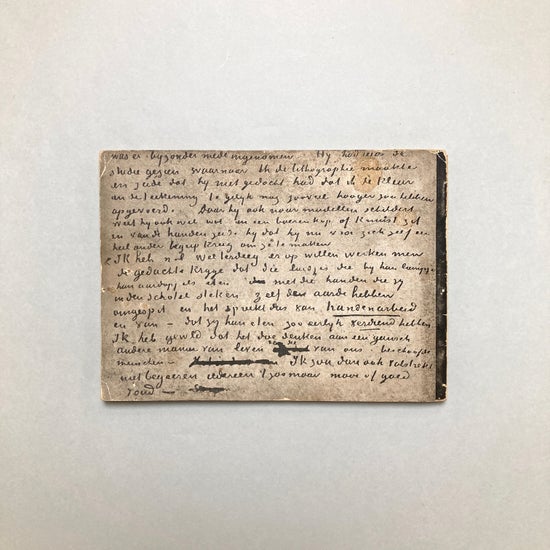 was er byzonder mede ingenomen Hy had reeds de
studie gezien waarnaar ik de lithographie maakte
en zeide dat hy niet gedacht had dat ik de kleur
en de teekening te gelyk nog zooveel hooger zou hebben
opgevoerd. Daar hy ook naar modellen schildert
weet hy ook wel wat in een boerenkop of knuist zit
en van de handen zeide hy dat hy nu voor zich zelf een
heel ander begrip kreeg om ze te maken
Ik heb nl wel terdeeg er op willen werken men
de gedachte krijge dat die luidjes die by hun lampje
hun aardappels eten met die handen die zy
in den schotel steken zelf de aarde hebben
omgespit en het spreekt dus van handenarbeid
en van – dat zy hun eten zoo eerlyk verdiend hebben
Ik heb gewild dat het doe denken aan een gansch
andere manier van leven dan die van ons beschaafde
menschen Ik zou dan ook volstrekt
niet begeeren iedereen 't zoo maar mooi of goed
vond –